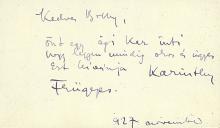 Kedves Bolly,
önt egy ági Kar intó
hogy legyen mindig okos és ügyes
Ezt kívánja Karinthy
Frigyes.
927 november